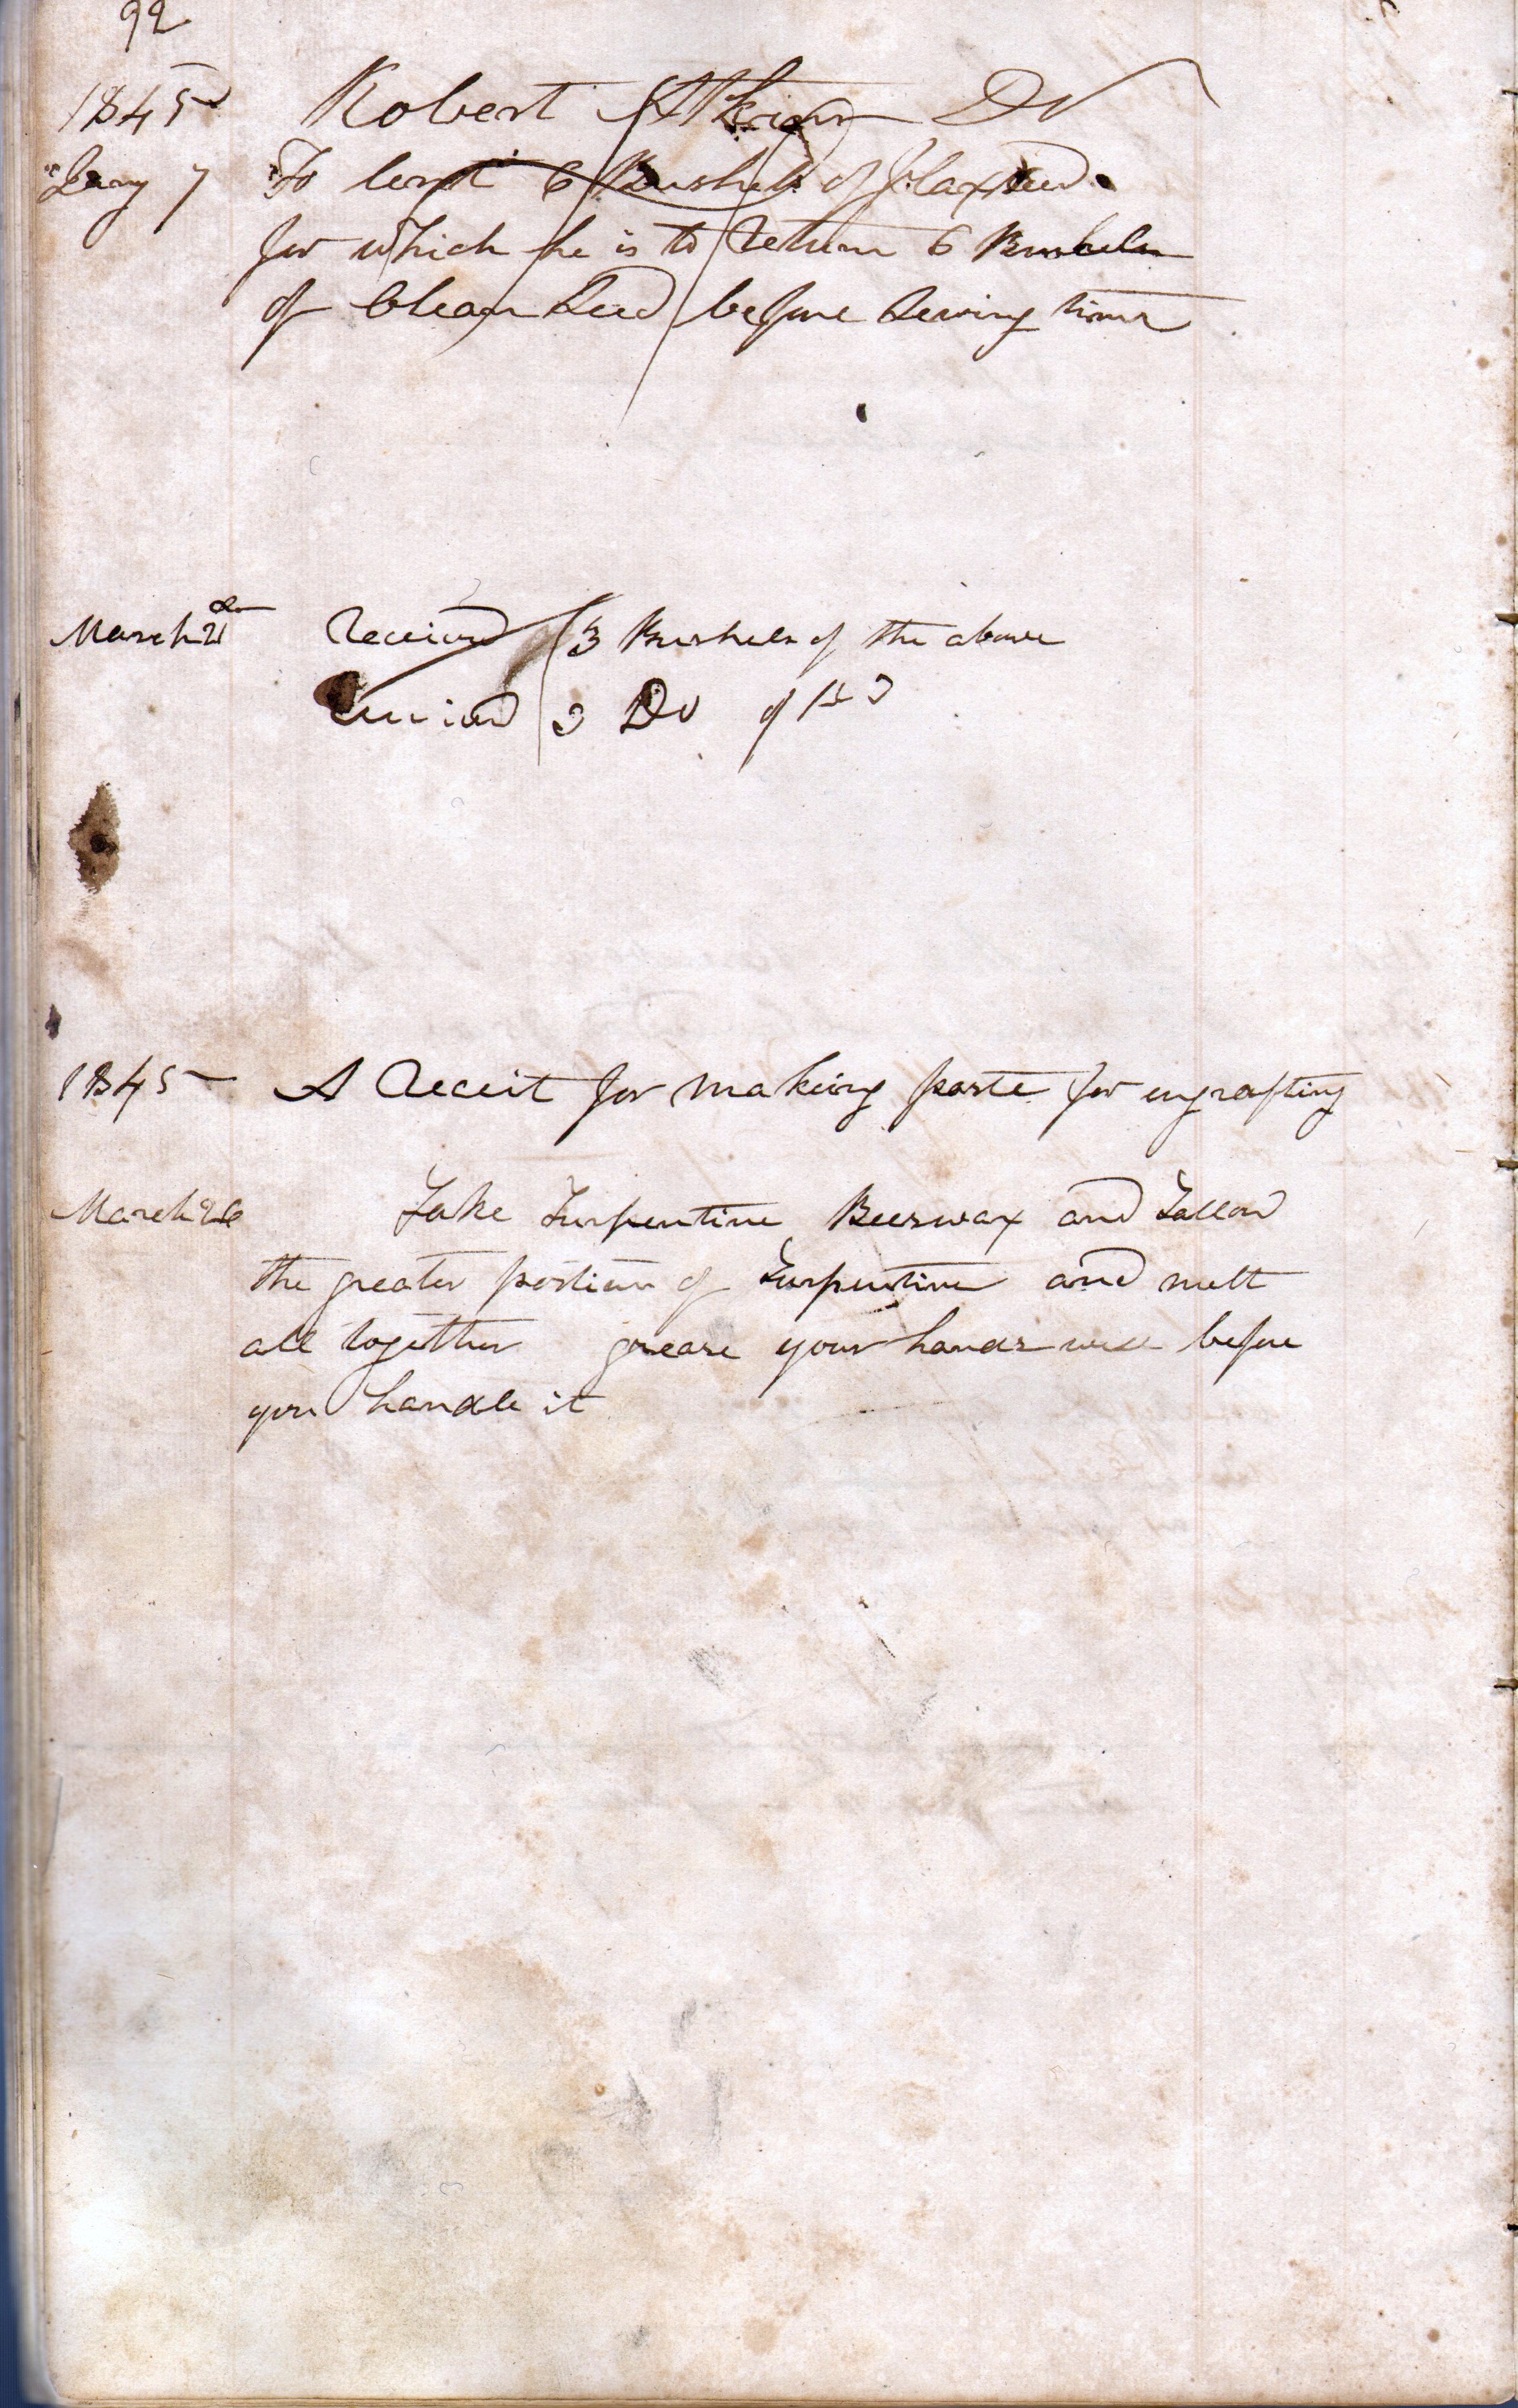 92
1845 Robert Atkins Dr
Jany 7 To lent 6 Bushels of flaxseed
for which he is to Return 6 Bushels
of Clean Seed before Sewing time
March 21 Received 3 Bushels of the above
Received 3 Do of
1845 A Receit for making paste for engrafting
March 26 Take Turpentine Beeswax and Tallow
the greater portion of Turpentine and melt
all together grease your hands well before
you handle it